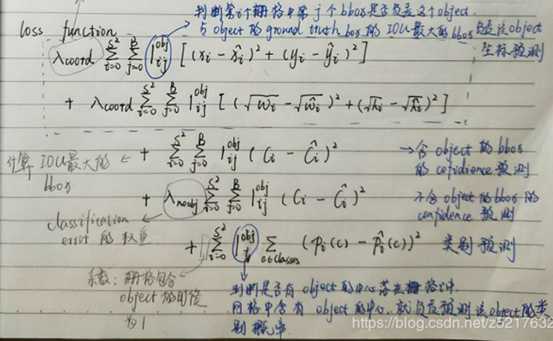 判断第i个栅格中第j个bbox是否负责这个object
loss function
与object的ground truth box的IOU最大的bbox负责该object
坐标预测
λcoord Σ_{i=0}^{S²} Σ_{j=0}^{B} 1_{ij}^{obj} [(xi - x̂i)² + (yi - ŷi)²]
+ λcoord Σ_{i=0}^{S²} Σ_{j=0}^{B} 1_{ij}^{obj} [(√wi - √ŵi)² + (√hi - √ĥi)²]
计算IOU最大的
bbox
+ Σ_{i=0}^{S²} Σ_{j=0}^{B} 1_{ij}^{obj} (Ci - Ĉi)²
→含object的bbox
的cofidience预测
+ λnoobj Σ_{i=0}^{S²} Σ_{j=0}^{B} 1_{ij}^{obj} (Ci - Ĉi)²
不含object的bbox的
confidence预测
classification
error的权重
+ Σ_{i=0}^{S²} 1_i^{obj} Σ_{c∈classes} (pi(c) - p̂i(c))²
类别预测
系数:栅格包含
object的时候
为1
判断是否有object的中心落在栅格i中
网格中含有object的中心,就负责预测该object的类
别概率
https://blog.csdn.net/z5217632